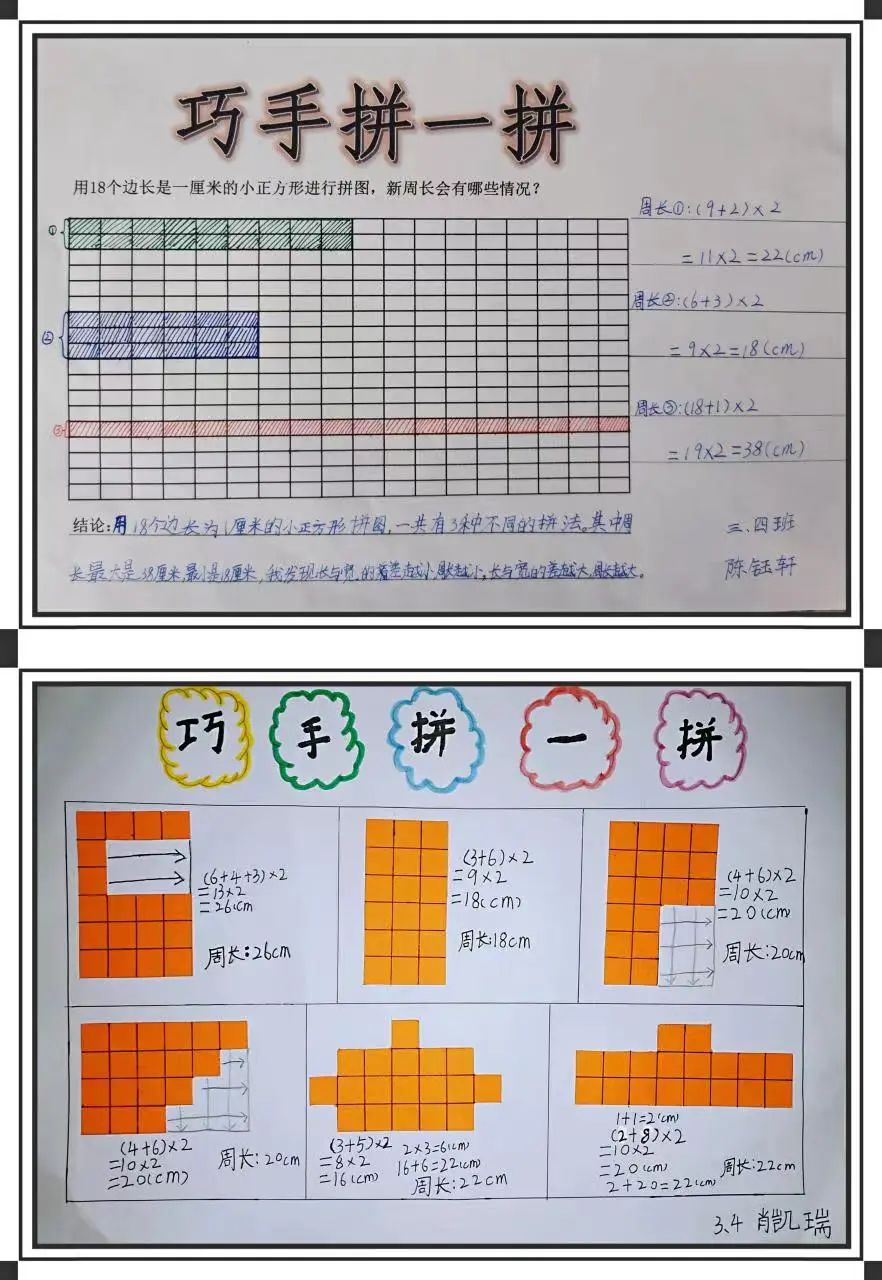 巧手拼一拼
用18个边长是一厘米的小正方形进行拼图，新周长会有哪些情况？
①
②
③
周长①:(9+2)×2
=11×2=22(cm)
周长②:(6+3)×2
=9×2=18(cm)
周长③:(18+1)×2
=19×2=38(cm)
结论:用18个边长为1厘米的小正方形拼图,一共有3种不同的拼法。其中周
长最大是38厘米,最小是18厘米,我发现长与宽的差越小,周长越小,长与宽的差越大,周长越大。
三.四班
陈钰轩
巧手拼一拼
(6+4+3)×2
=13×2
=26(cm
周长:26cm
(3+6)×2
=9×2
=18(cm)
周长:18cm
(4+6)×2
=10×2
=20(cm)
周长:20cm
(4+6)×2
=10×2
=20(cm)
周长:20cm
(3+5)×2
=8×2
=16(cm)
2×3=6(cm)
16+6=22(cm)
周长:22cm
1+1=2(cm)
(2+8)×2
=10×2
=20(cm)
2+20=22(cm)
周长:22cm
3.4 肖凯瑞